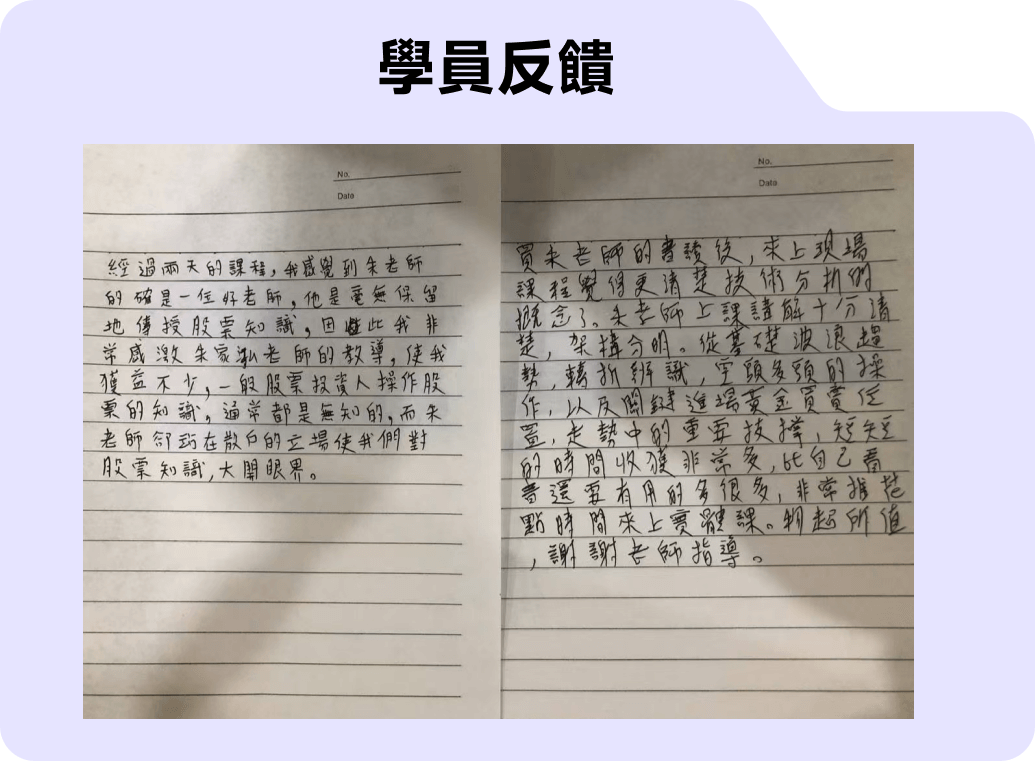 學員反饋
No.
Date
經過兩天的課程,我感覺到朱老師
的確是一位好老師,他是毫無保留
地傳授股票知識,因此我非
常感激朱家泓老師的教導,使我
獲益不少,一般股票投資人操作股
票的知識,通常都是無知的,而朱
老師卻站在散戶的立場使我們對
股票知識,大開眼界。
No.
Date
買朱老師的書讀後,來上現場
課程覺得更清楚技術分析的
概念了。朱老師上課講解十分清
楚,架構分明。從基礎波浪趨
勢,轉折辨識,空頭多頭的操
作,以及關鍵進場黃金買賣位
置,走勢中的重要技撐,短短
的時間收獲非常多,比自己看
書還要有用的多很多,非常推花
點時間來上實體課。物超所值
,謝謝老師指導。